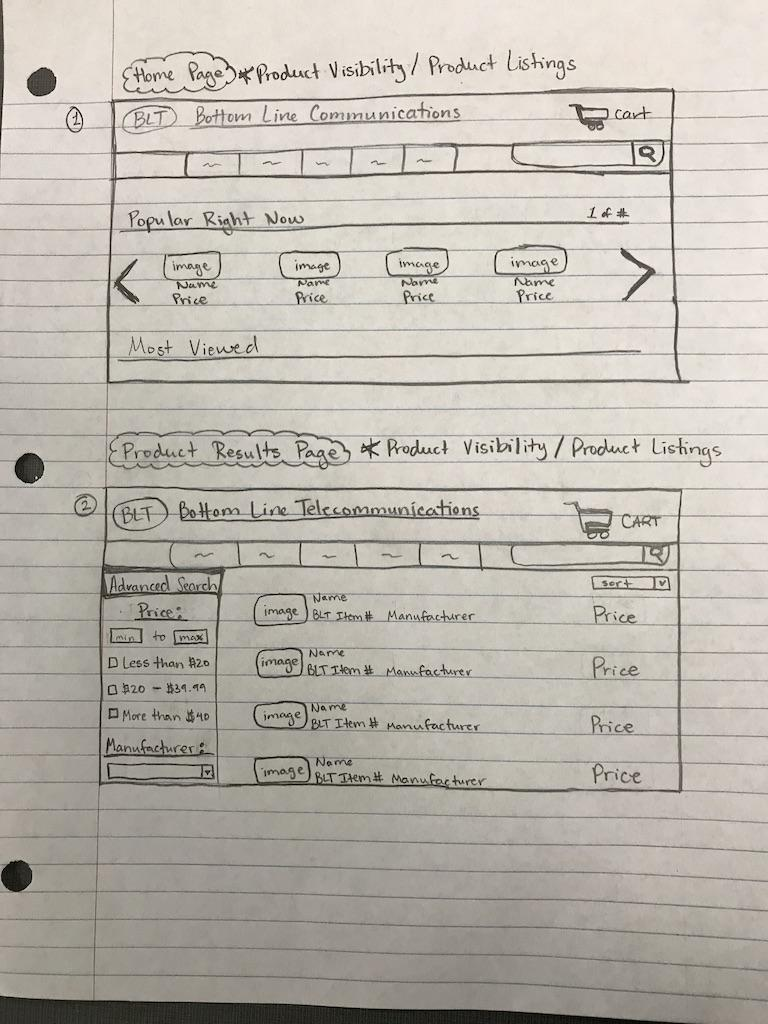 Home Page * Product Visibility / Product Listings
1
BLT Bottom Line Communications cart
Popular Right Now 1 of #
image image image image
Name Name Name Name
Price Price Price Price
Most Viewed
Product Results Page * Product Visibility / Product Listings
2
BLT Bottom Line Telecommunications CART
Advanced Search sort
Price:
min to max
Less than $20
$20 - $39.99
More than $40
Manufacturer:
Name
image BLT Item # Manufacturer Price
Name
image BLT Item # Manufacturer Price
Name
image BLT Item # Manufacturer Price
Name
image BLT Item # Manufacturer Price